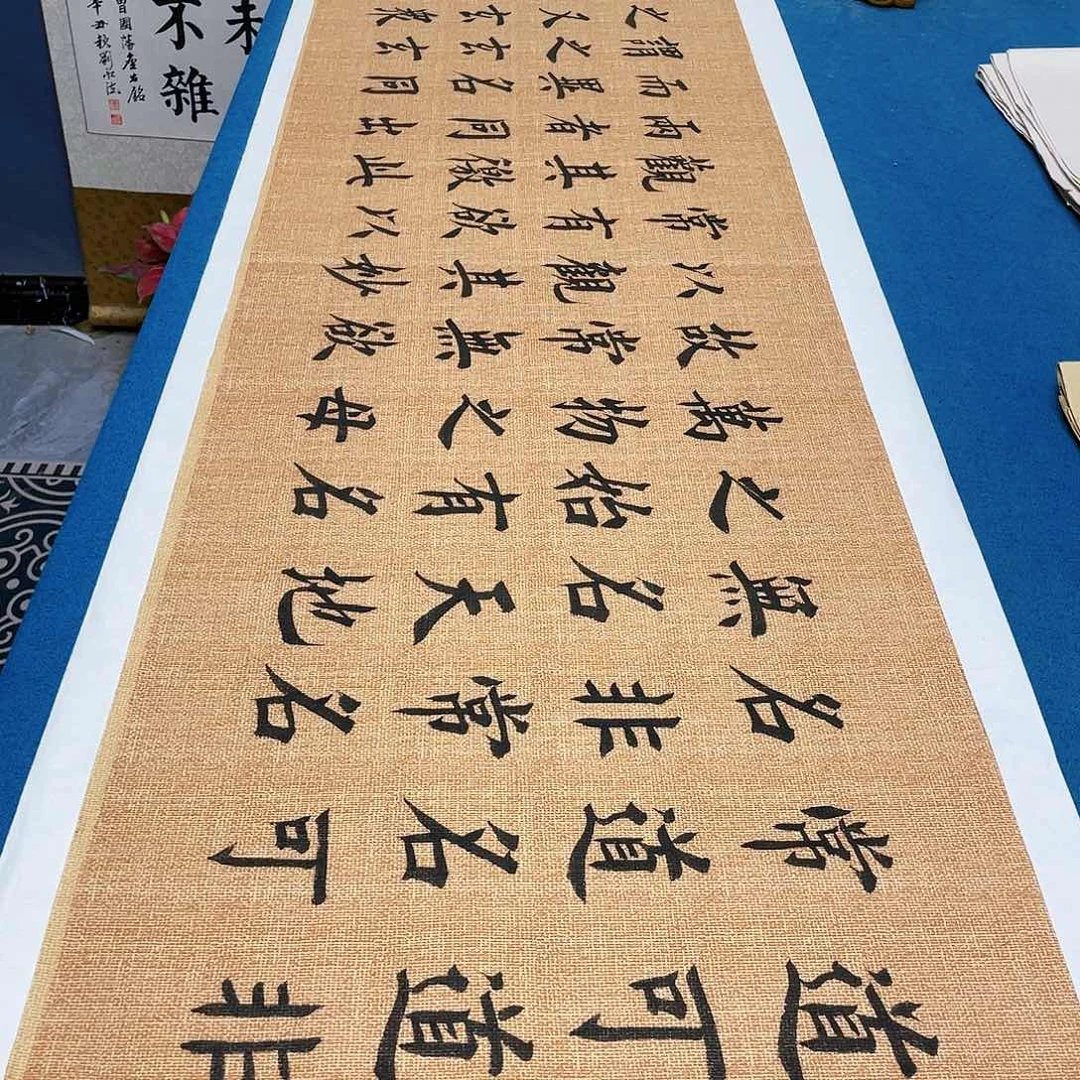 道可道非
常道名可
名非常名
無名天地
之始有名
萬物之母
故常無欲
以觀其妙
常有欲以
觀其徼此
兩者同出
而異名同
謂之玄玄
之又玄衆
不雜
曾國藩座右銘
辛丑秋劉